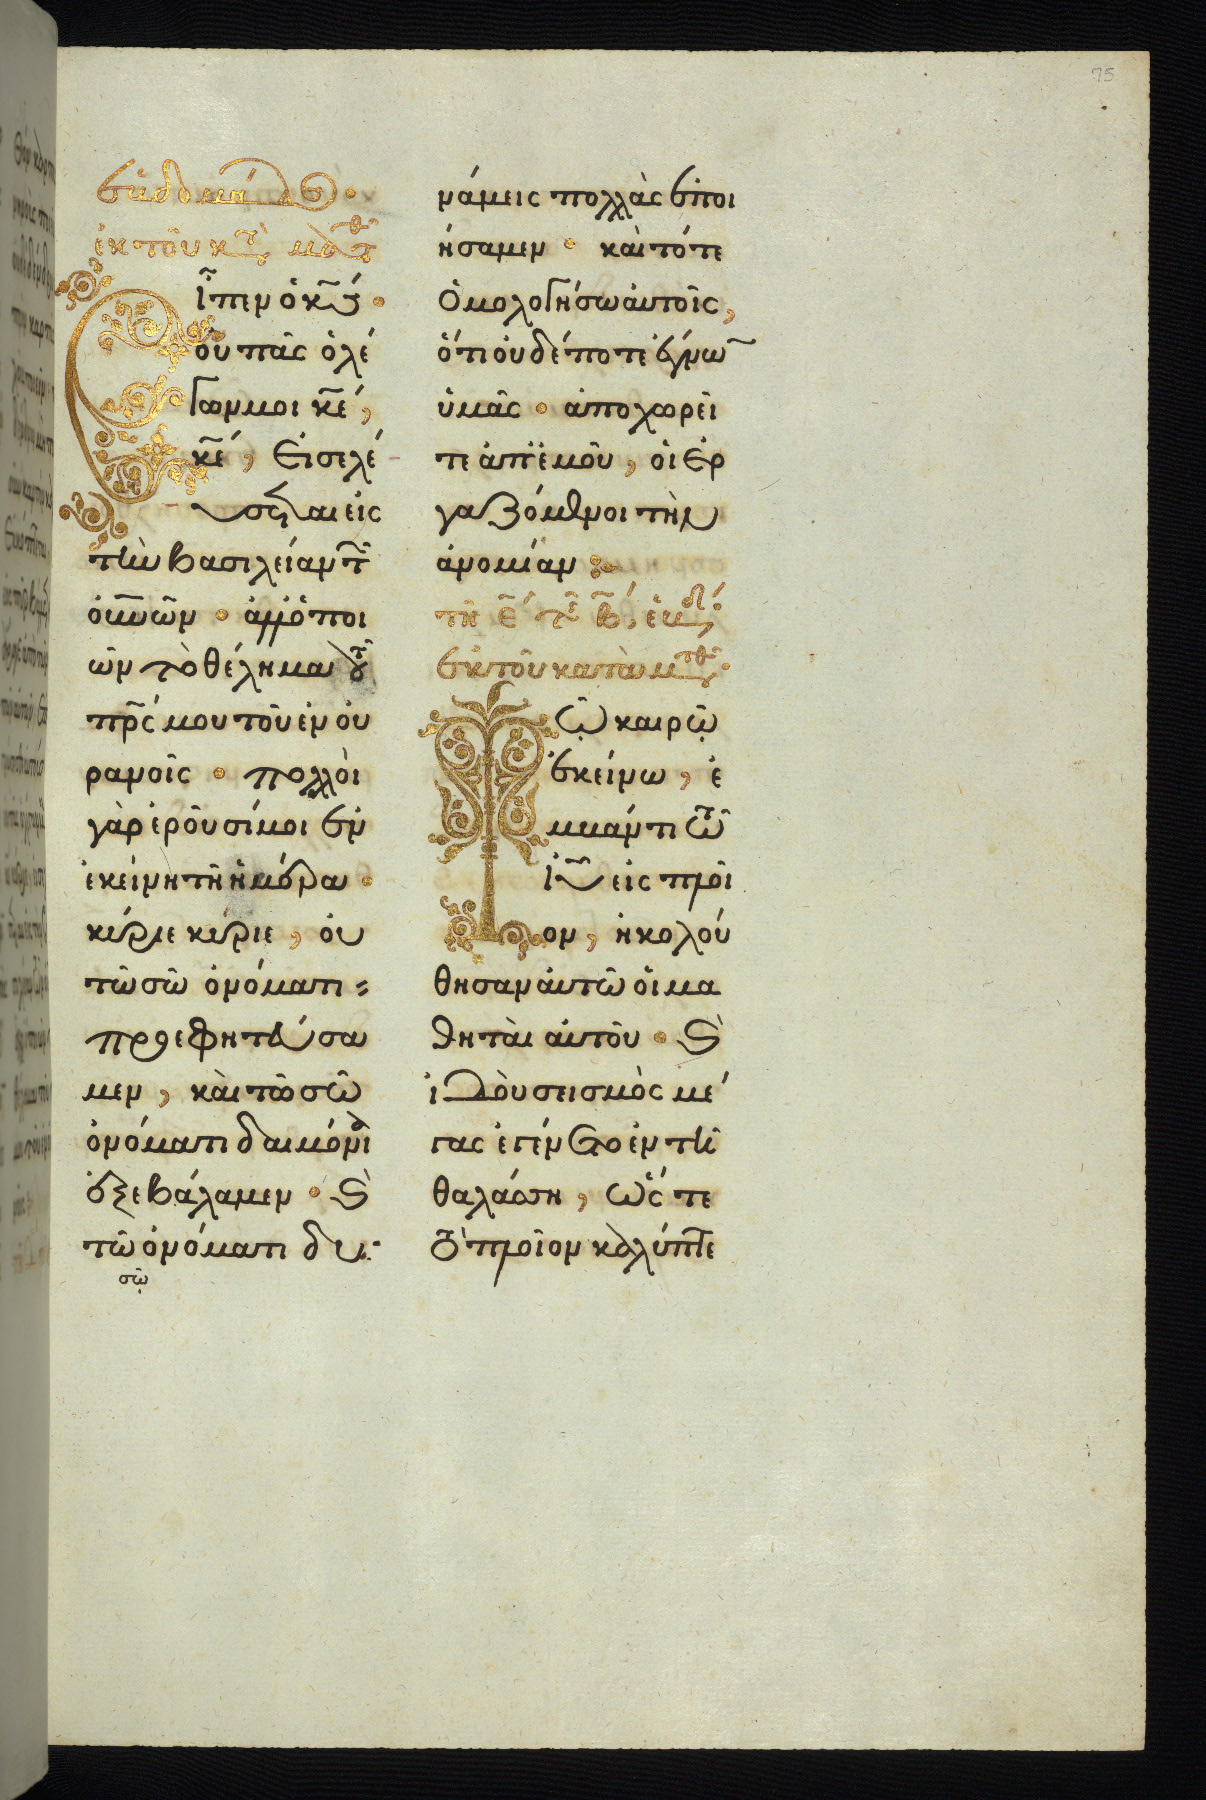 75
ἑβδομάδος.
ἐκ τοῦ κτ̀ μθτ
ἶπεν ὁ κς̄.
οὐ πᾶς ὁ λέ
γων μοι κ̄ε,
κ̄ε, εἰσελέ
υσεται εἰς
τὴν βασιλείαν τ
οὐνῶν. ἀλλ' ὁ ποι
ῶν τὸ θέλημα τοῦ
πρ̄ς μου τοῦ ἐν οὐ
ρανοῖς. πολλοὶ
γὰρ ἐροῦσί μοι ἐν
ἐκείνη τῆ ἡμέρα.
κύριε κύριε, οὐ
τῶ σῶ ὀνόματι
προεφητεύσα
μεν, καὶ τῶ σῶ
ὀνόματι δαιμόνι
ἀ ἐξεβάλαμεν. καὶ
τῶ ὀνόματι δυ
σῶ
νάμεις πολλὰς ἐποι
ήσαμεν. καὶ τότε
ὁμολογήσω αὐτοῖς,
ὅτι οὐδέποτε ἔγνων
ὑμᾶς. ἀποχωρεῖ
τε ἀπ' ἐμοῦ, οἱ ἐρ
γαζόμενοι τὴν
ἀνομίαν:
τῆ ε̄ τῆς β̄, ἑβδ.
ἐκ τοῦ κατὰ μτθ.
ῶ καιρῶ
ἐκείνω, ἐ
μβάντι τῶ
ἰυ εἰς πλοῖ
ον, ἠκολού
θησαν αὐτῶ οἱ μα
θηταὶ αὐτοῦ. καὶ
ἰδοὺ σεισμὸς μέ
γας ἐγένετο ἐν τῆ
θαλάσση, ὥστε
τὸ πλοῖον καλύπτε